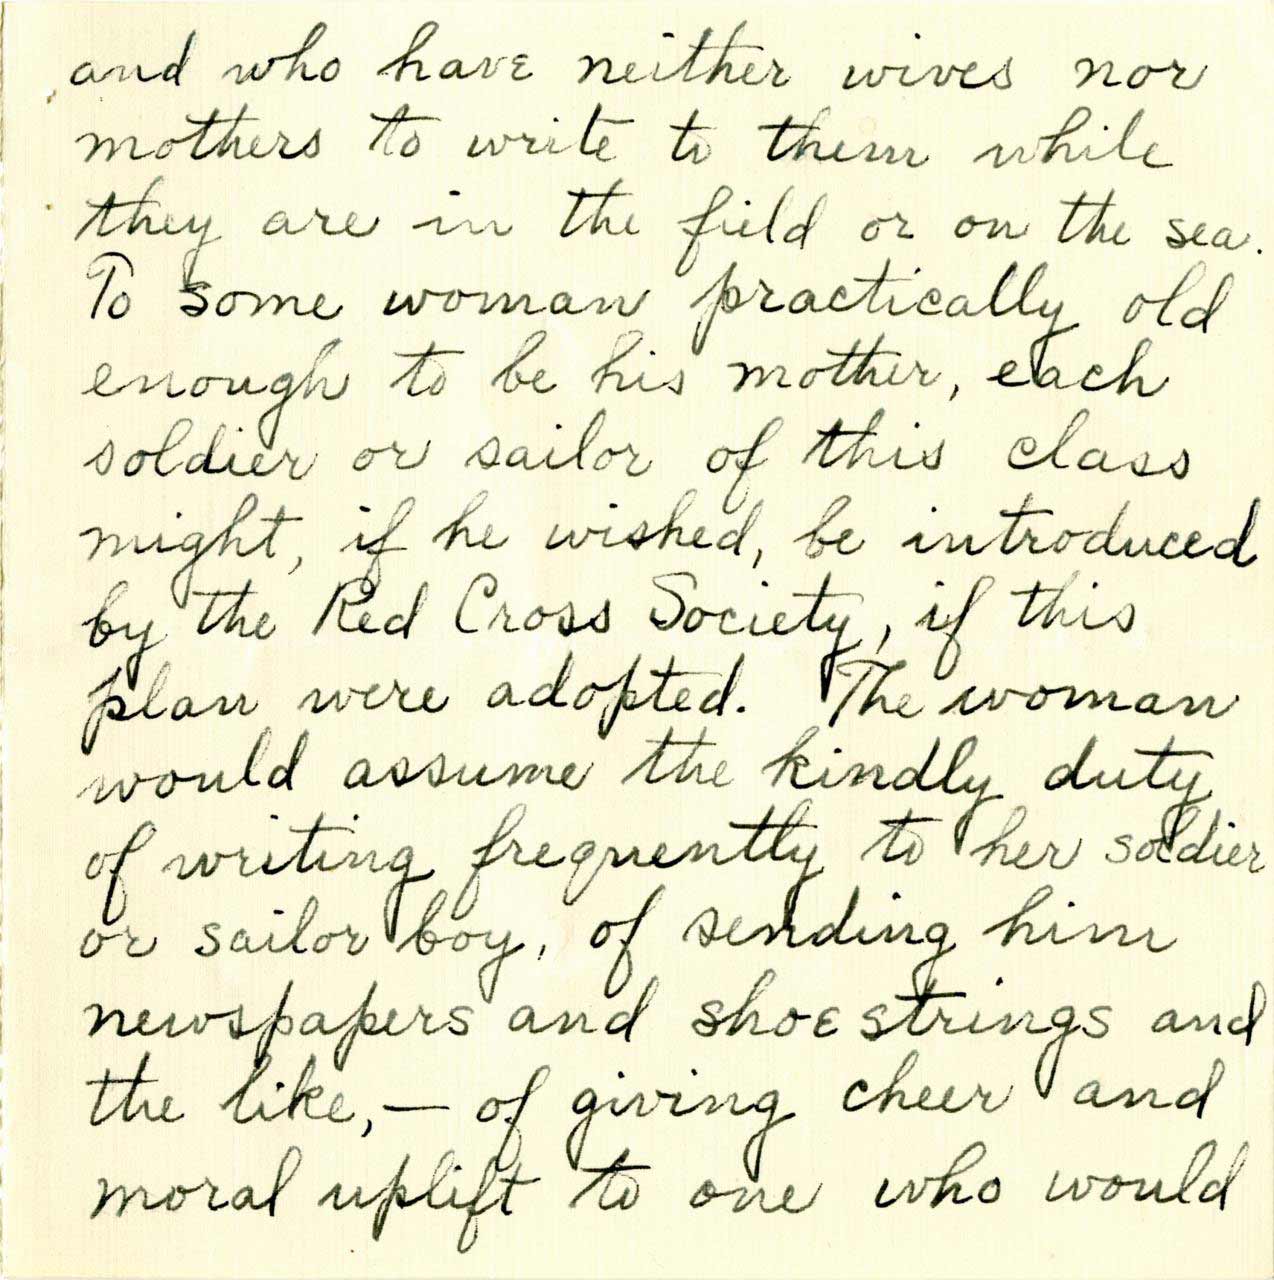 and who have neither wives nor
mothers to write to them while
they are in the field or on the sea.
To some woman practically old
enough to be his mother, each
soldier or sailor of this class
might, if he wished, be introduced
by the Red Cross Society, if this
plan were adopted. The woman
would assume the kindly duty
of writing frequently to her soldier
or sailor boy, of sending him
newspapers and shoestrings and
the like, — of giving cheer and
moral uplift to one who would